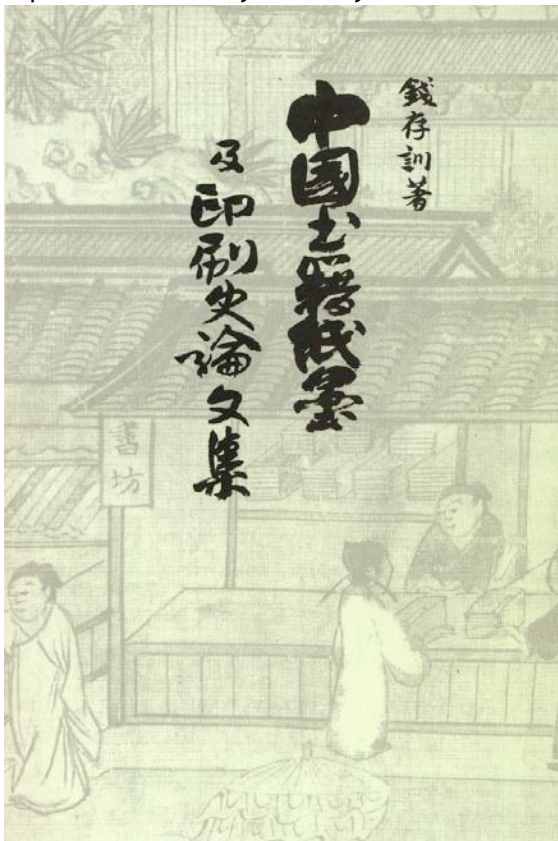 錢存訓著
中國書籍紙墨
及印刷史論文集
書坊